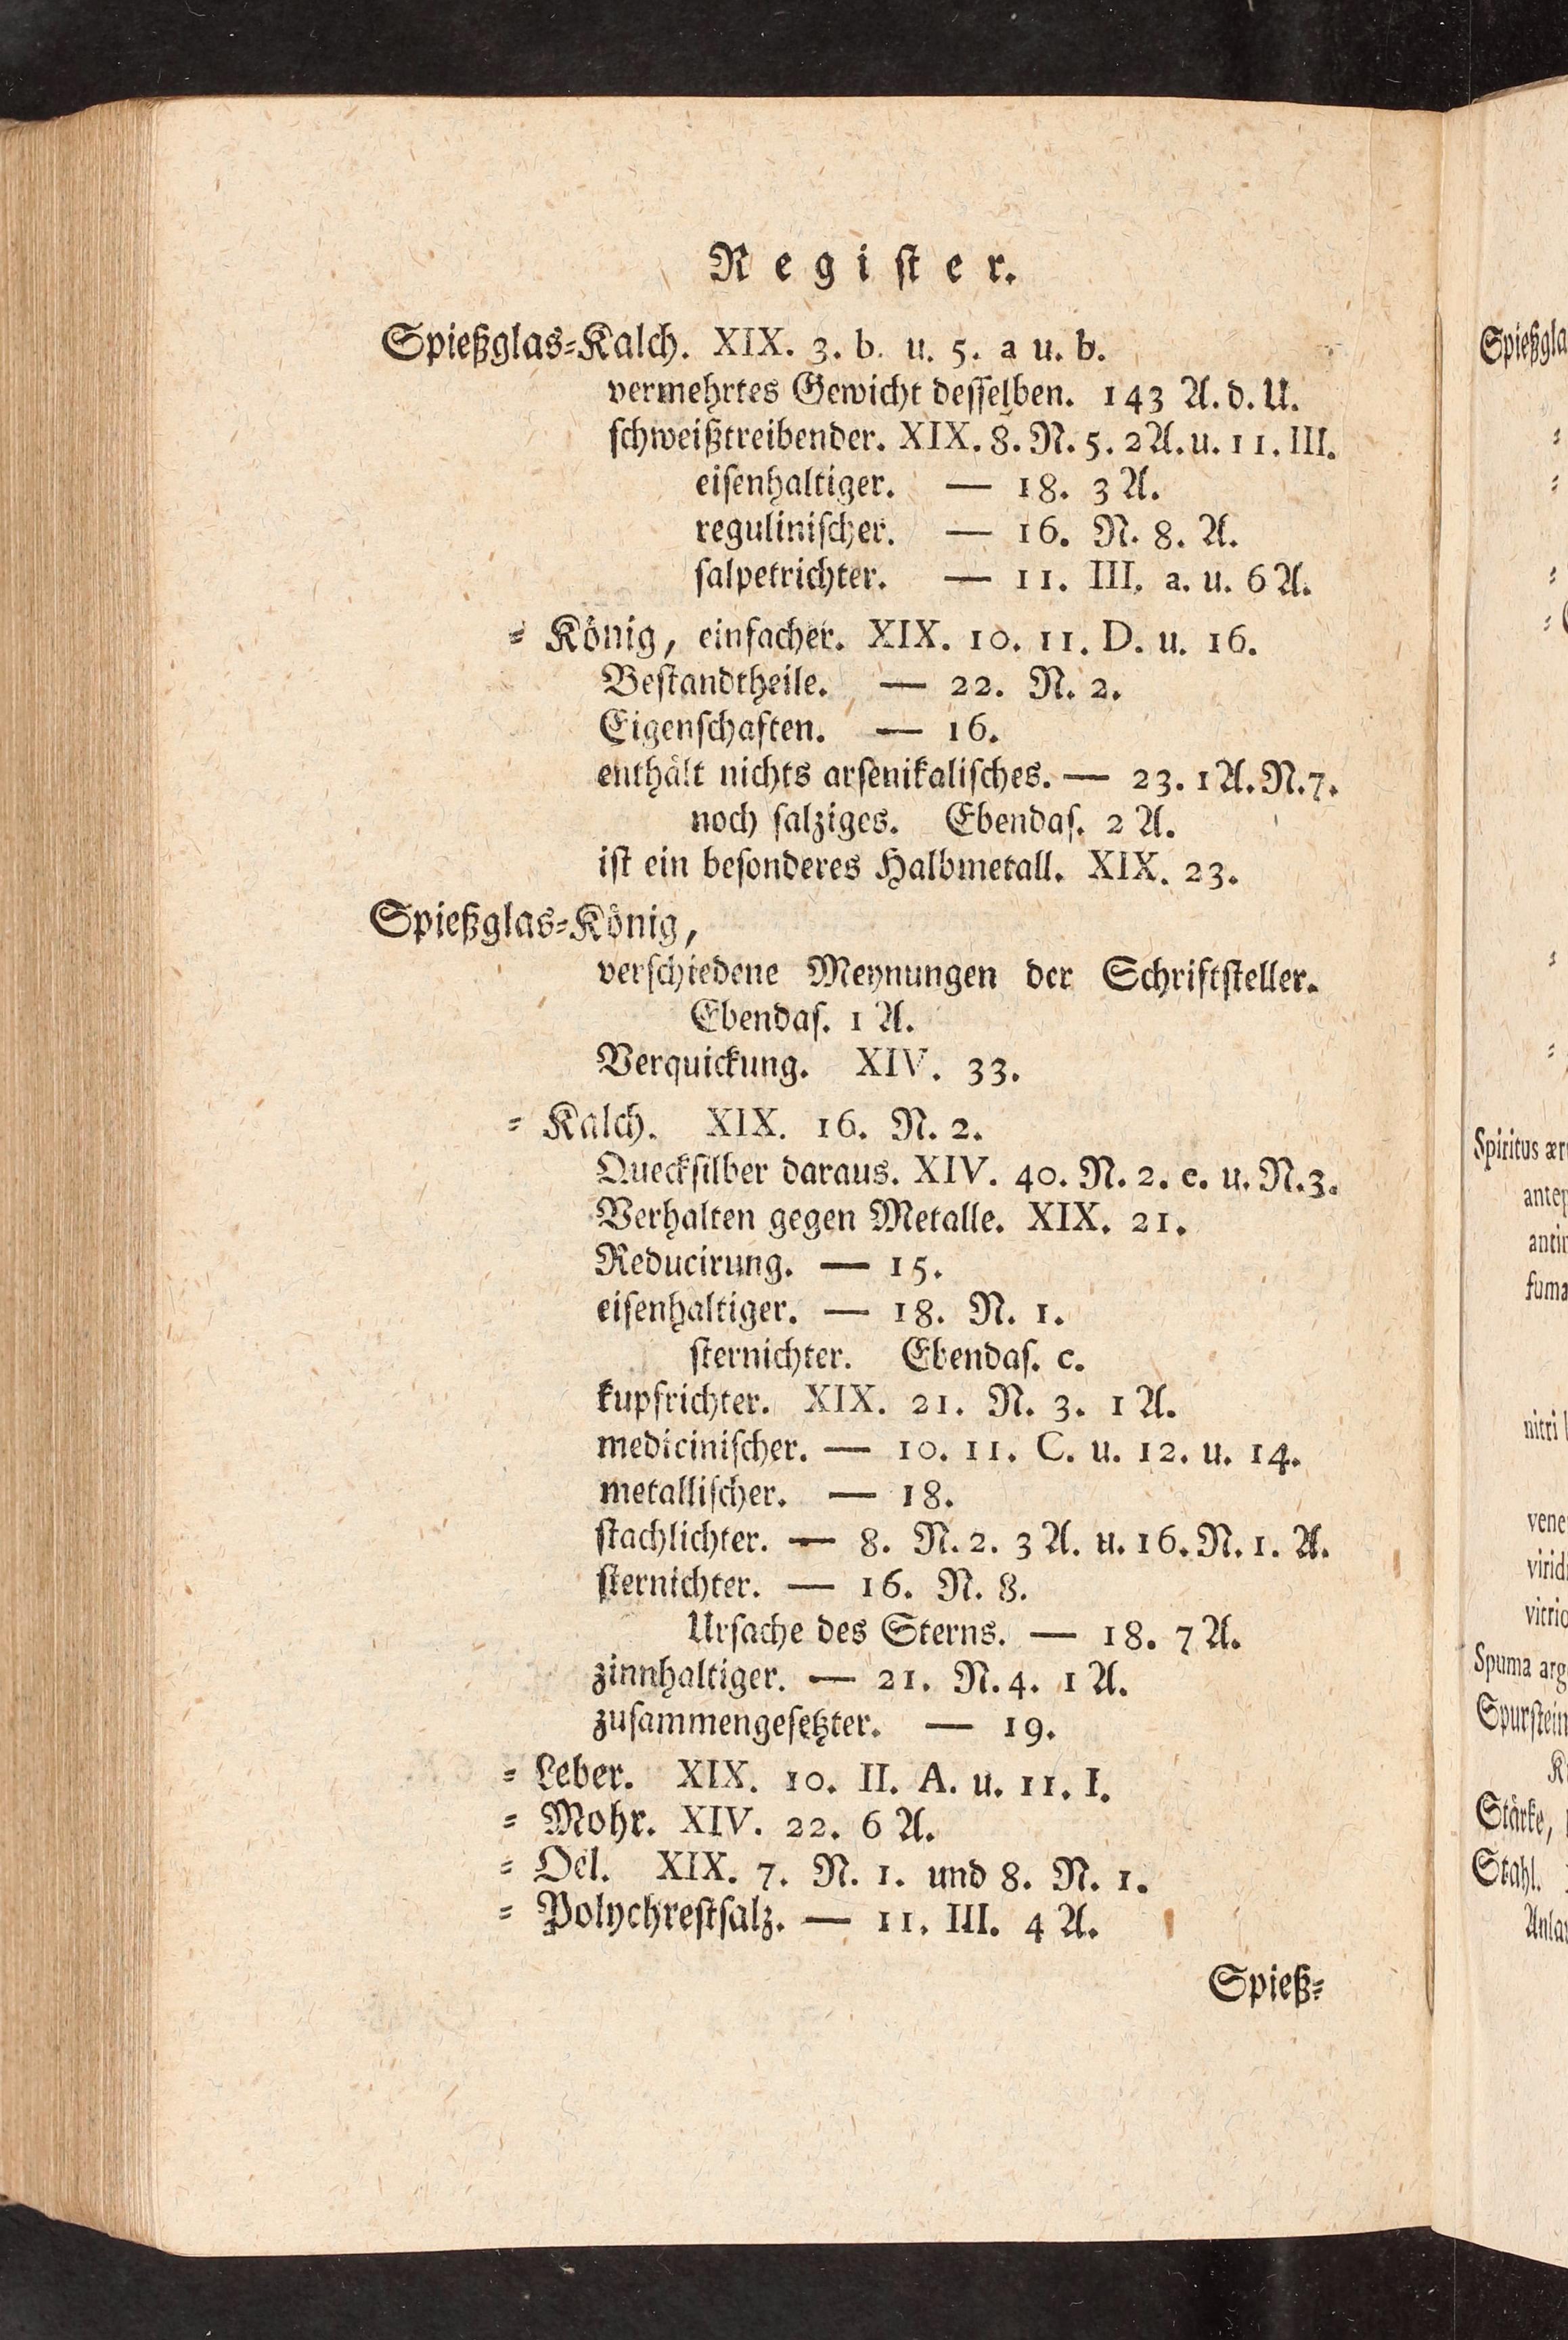 Register.
Spießglas-Kalch. XIX. 3. b. u. 5. a u. b.
vermehrtes Gewicht desselben. 143 A. d. U.
schweißtreibender. XIX. 8. N. 5. 2 A. u. 11. III.
eisenhaltiger. — 18. 3 A.
regulinischer. — 16. N. 8. A.
salpetrichter. — 11. III. a. u. 6 A.
= König, einfacher. XIX. 10. 11. D. u. 16.
Bestandtheile. — 22. N. 2.
Eigenschaften. — 16.
enthält nichts arsenikalisches. — 23. 1 A. N. 7.
noch salziges. Ebendas. 2 A.
ist ein besonderes Halbmetall. XIX. 23.
Spießglas-König,
verschiedene Meynungen der Schriftsteller.
Ebendas. 1 A.
Verquickung. XIV. 33.
= Kalch. XIX. 16. N. 2.
Quecksilber daraus. XIV. 40. N. 2. c. u. N. 3.
Verhalten gegen Metalle. XIX. 21.
Reducirung. — 15.
eisenhaltiger. — 18. N. 1.
sternichter. Ebendas. c.
kupfrichter. XIX. 21. N. 3. 1 A.
medicinischer. — 10. 11. C. u. 12. u. 14.
metallischer. — 18.
stachlichter. — 8. N. 2. 3 A. u. 16. N. 1. A.
sternichter. — 16. N. 8.
Ursache des Sterns. — 18. 7 A.
zinnhaltiger. — 21. N. 4. 1 A.
zusammengesetzter. — 19.
= Leber. XIX. 10. II. A. u. 11. I.
= Mohr. XIV. 22. 6 A.
= Oel. XIX. 7. N. 1. und 8. N. 1.
= Polychrestsalz. — 11. III. 4 A.
Spieß=
Spiritus
Spuma
Stärke,
Stahl.